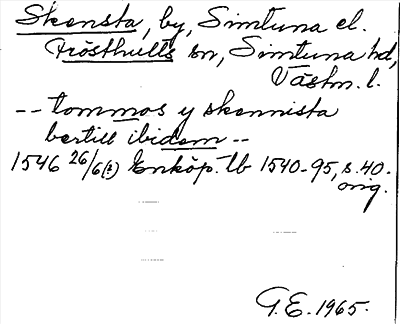 Skensta, by, Simtuna el.
Frösthults sn, Simtuna hd,
Västm. l.
-- tommos y skennista
bertill ibidem --
1546 26/6(?) Enköp. tb 1540-95, s. 40.
orig.
G.E. 1965.